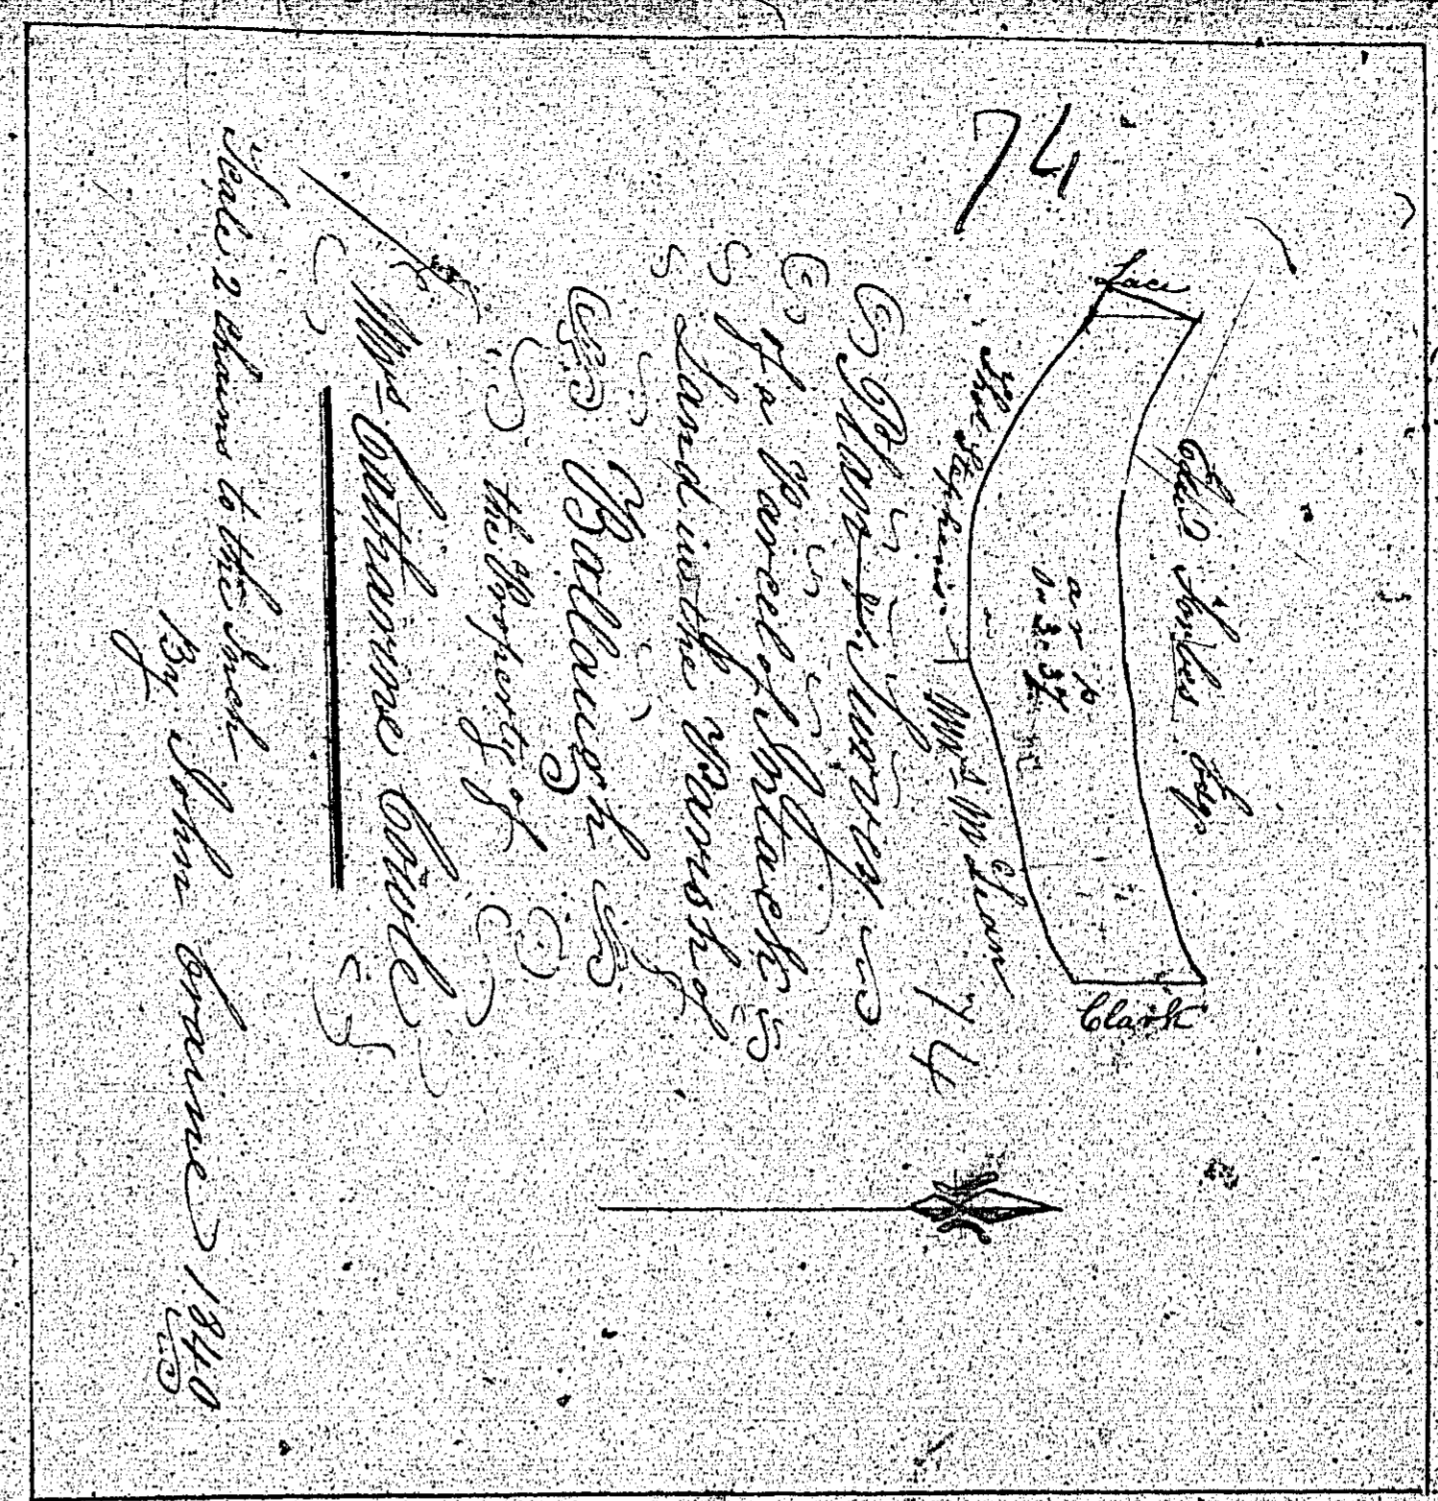 74
Lace
Edwd Forbes Esqr
a r p
0 " 3 " 37
Clark
Thos Stephens
Mrs McLean
74
Plan & Survey
of a Parcel of Intack
Land in the Parish of
Ballaugh
the Property of
Mrs Catharine Cowle
Scale 2 chains to the Inch
By John Craine 1840